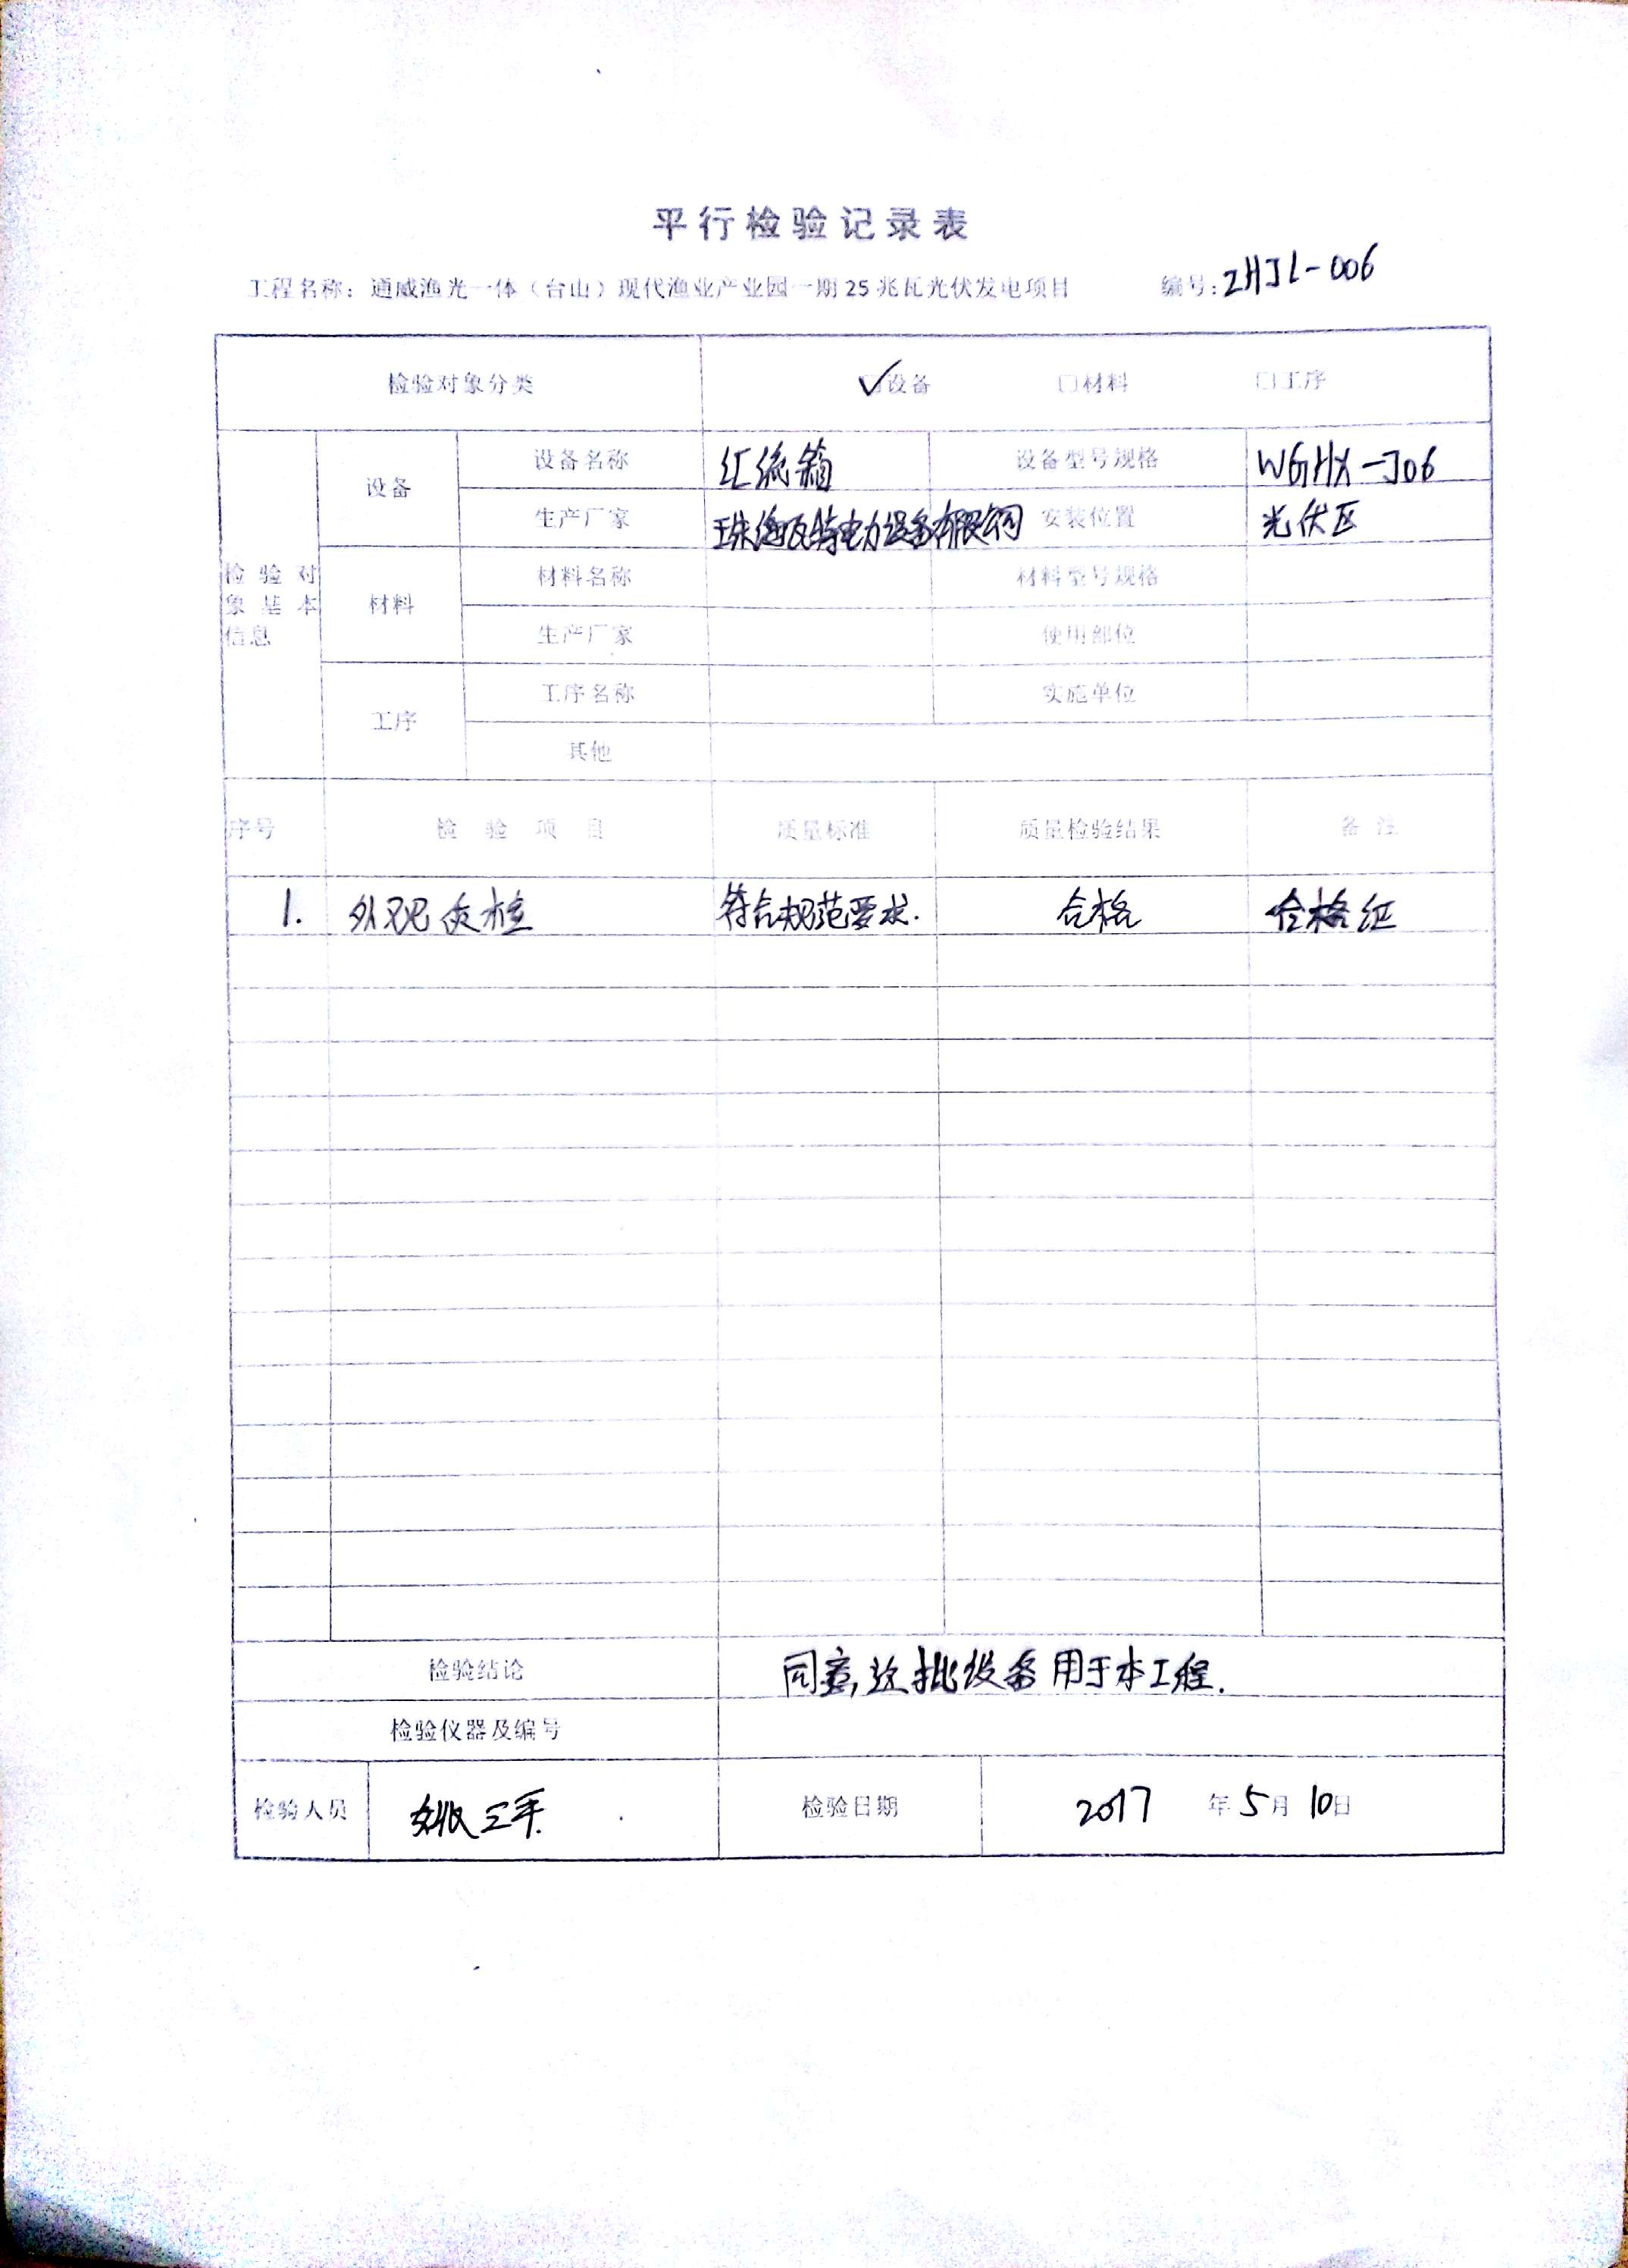 平行检验记录表
工程名称：通威渔光一体（台山）现代渔业产业园一期25兆瓦光伏发电项目 编号：ZHJL-006
检验对象分类 ☑设备 □材料 □工序
检验对象基本信息
设备 设备名称 汇流箱 设备型号规格 WGHX-J06
生产厂家 珠海瓦特电力设备有限公司 安装位置 光伏区
材料 材料名称 材料型号规格
生产厂家 使用部位
工序 工序名称 实施单位
其他
序号 检验项目 质量标准 质量检验结果 备注
1. 外观质检 符合规范要求. 合格 合格证
检验结论 同意这批设备用于本工程.
检验仪器及编号
检验人员 检验日期 2017年5月10日